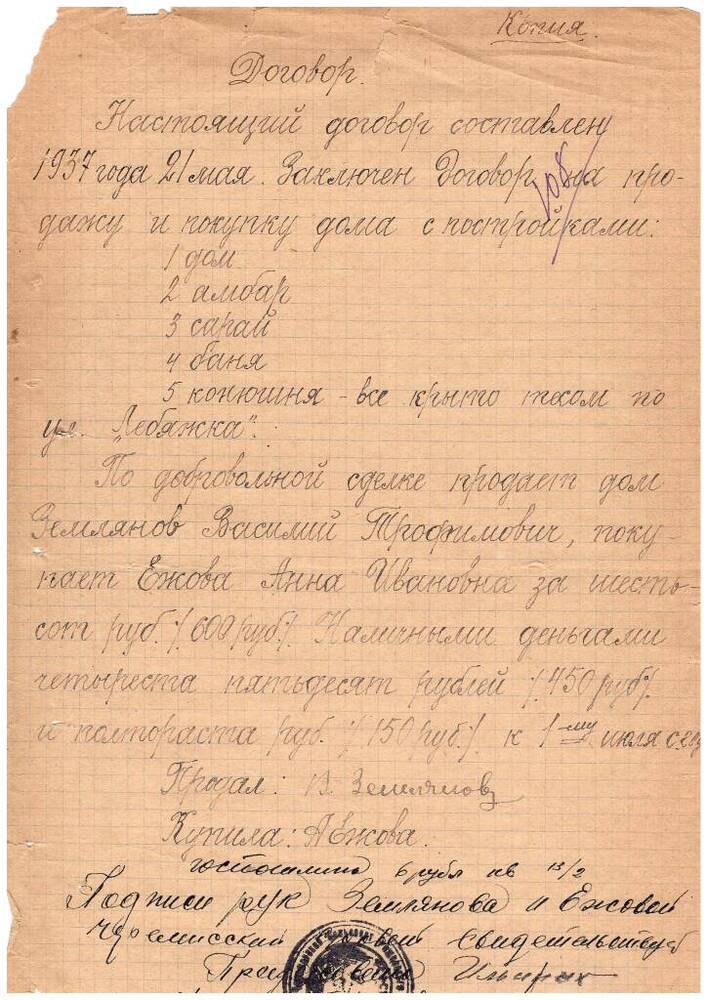 Копия.
Договор.
Настоящий договор составлен
1937 года 21 мая. Заключен Договор на про-
108
дажу и покупку дома с постройками:
1 дом
2 амбар
3 сарай
4 баня
5 конюшня - все крыто тесом по
ул. „Лебяжка".
По добровольной сделке продает дом
Землянов Василий Трофимович, поку-
пает Ежова Анна Ивановна за шесть-
сот руб. /600 руб/. Наличными деньгами
четыреста пятьдесят рублей /450 руб/.
и полтораста руб. /150 руб./. к 1-му июля с.г.
Продал: В. Землянов
Купила: АЕжова.
госпошлина 6 рубл кв 13/2
Подписи рук Землянова и Ежовой
Черемисский свидетельствует